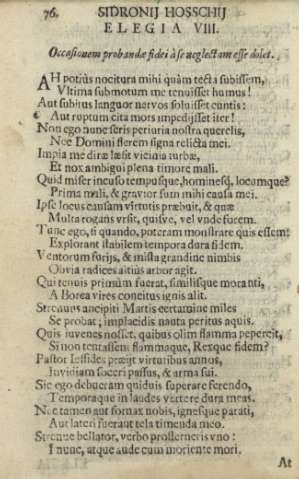 76. SIDRONIJ HOSSCHIJ
ELEGIA VIII.
Occasionem probandæ fidei à se neglectam esse dolet.
AH potiùs nocitura mihi quàm tecta subissem,
Vltima submotum me tenuisset humus!
Aut subitus languor nervos soluisset euntis:
Aut ruptum cita mors impedijsset iter!
Non ego nunc seris periuria nostra querelis,
Nec Domini flerem signa relicta mei.
Impia me diræ læsit vicinia turbæ,
Et nox ambigui plena timore mali.
Quid miser incuso tempusque, hominesq, locumque?
Prima mali, & gravior sum mihi causa mei.
Ipse locus causam virtutis præbuit, & quæ
Multa rogans vrsit, quisve, vel vnde forem.
Tunc ego, si quando, poteram monstrare quis essem:
Explorant stabilem tempora dura fidem.
Ventorum furijs, & mista grandine nimbis
Obvia radices altiùs arbor agit.
Qui tenuis primùm fuerat, similisque moranti,
A Borea vires concitus ignis alit.
Strenuus ancipiti Martis certamine miles
Se probat; implacidis nauta peritus aquis.
Quis iuvenes nosset, quibus olim flamma pepercit,
Si non tentassent flammaque, Rexque fidem?
Pastor Iessides præijt virtutibus annos,
Invidiam soceri passus, & arma sui.
Sic ego debueram quiduis superare ferendo,
Temporaque in laudes vertere dura meas.
Nec tamen aut fornax nobis, ignesque parati,
Aut lateri fuerant tela timenda meo.
Strenue bellator, verbo prosterneris vno:
I nunc, atque aude cum moriente mori.
At